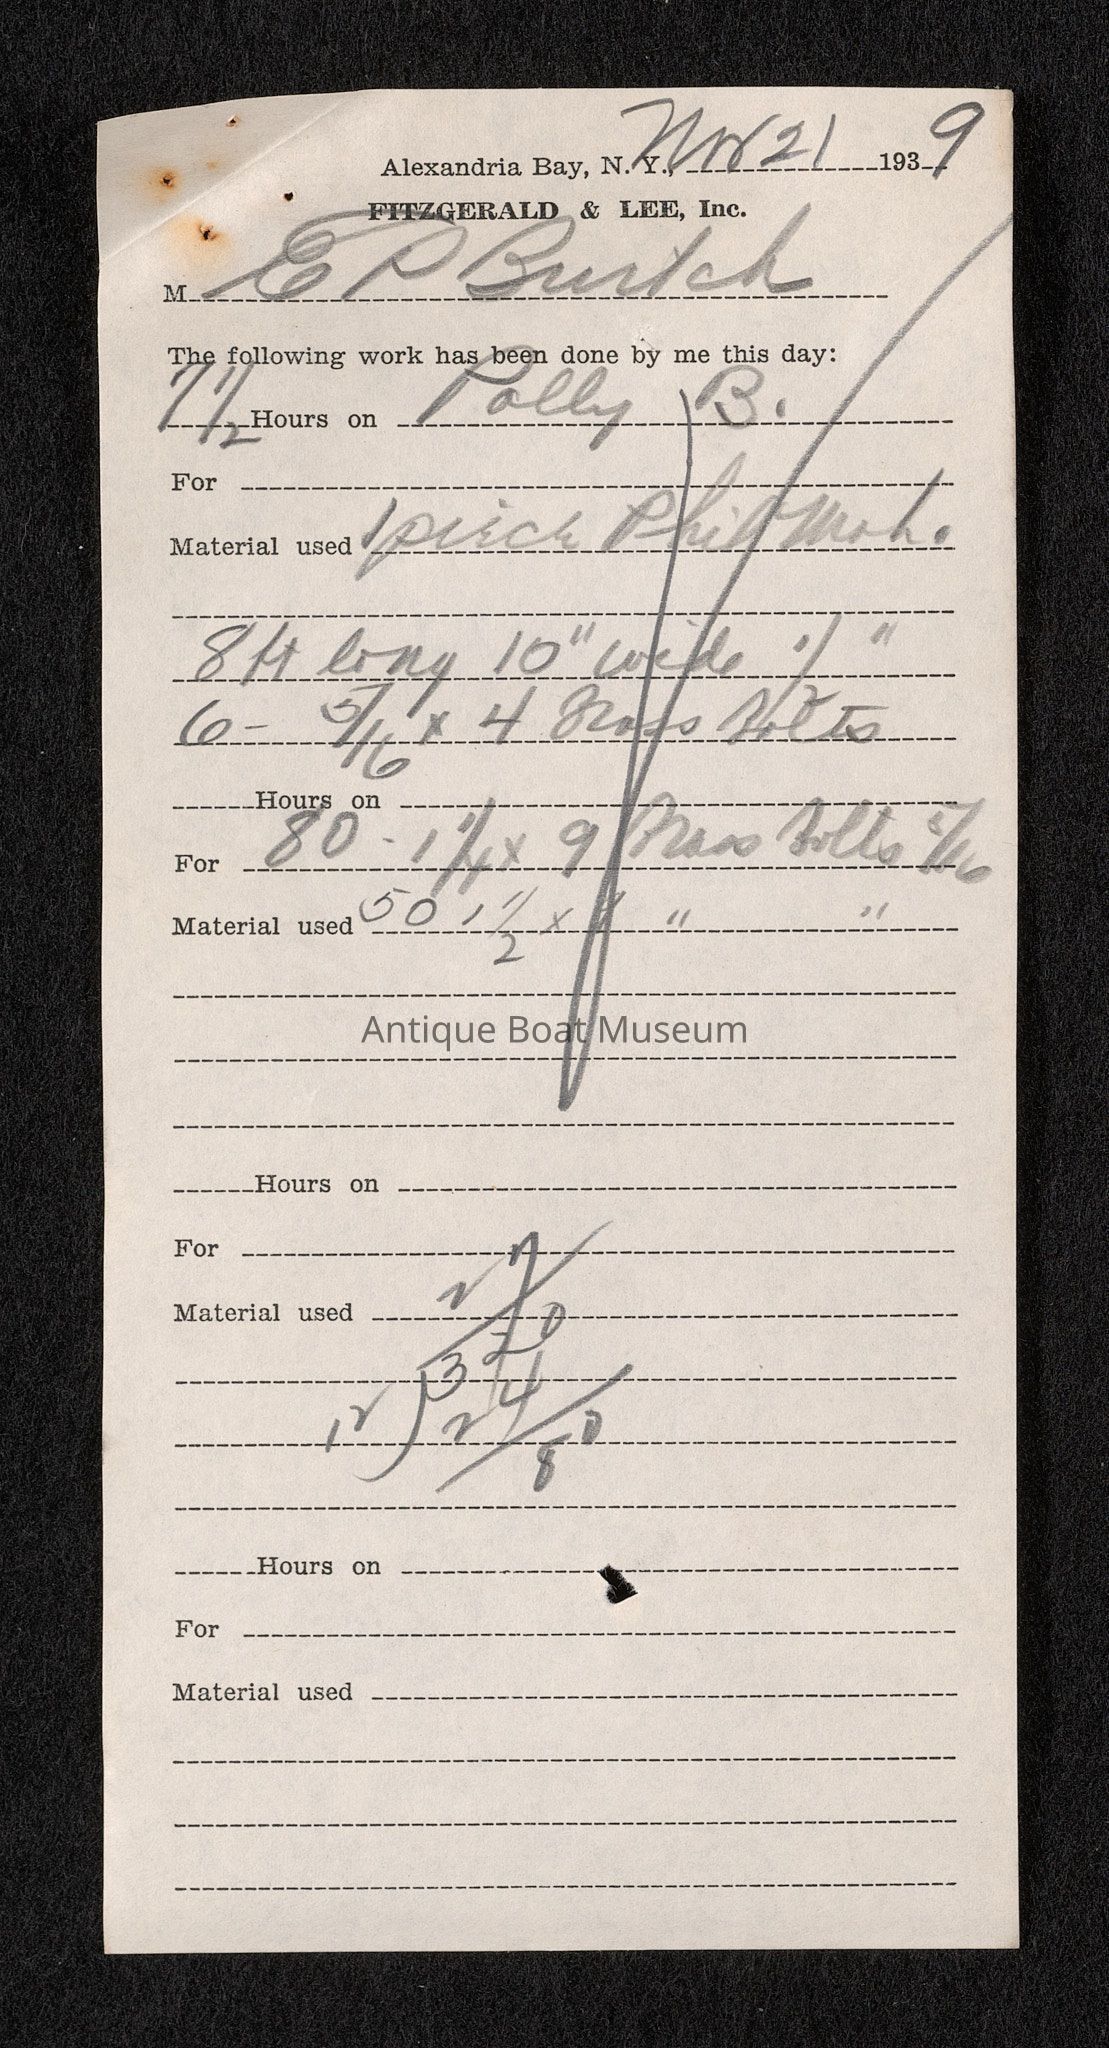 Alexandria Bay, N. Y., Nov 21 1939
FITZGERALD & LEE, Inc.
M E P Burtch
The following work has been done by me this day:
7 1/2 Hours on Polly B.
For
Material used 1 peick Phil Moh.
8 ft long 10" wide 1"
6 - 5/16 x 4 Brass Bolts
Hours on
For 80 - 1 1/4 x 9 Brass Bolts 5/16
Material used 50 1 1/2 x " "
Antique Boat Museum
Hours on
For
Material used 2 7
12 ) 320
24
80
Hours on
For
Material used